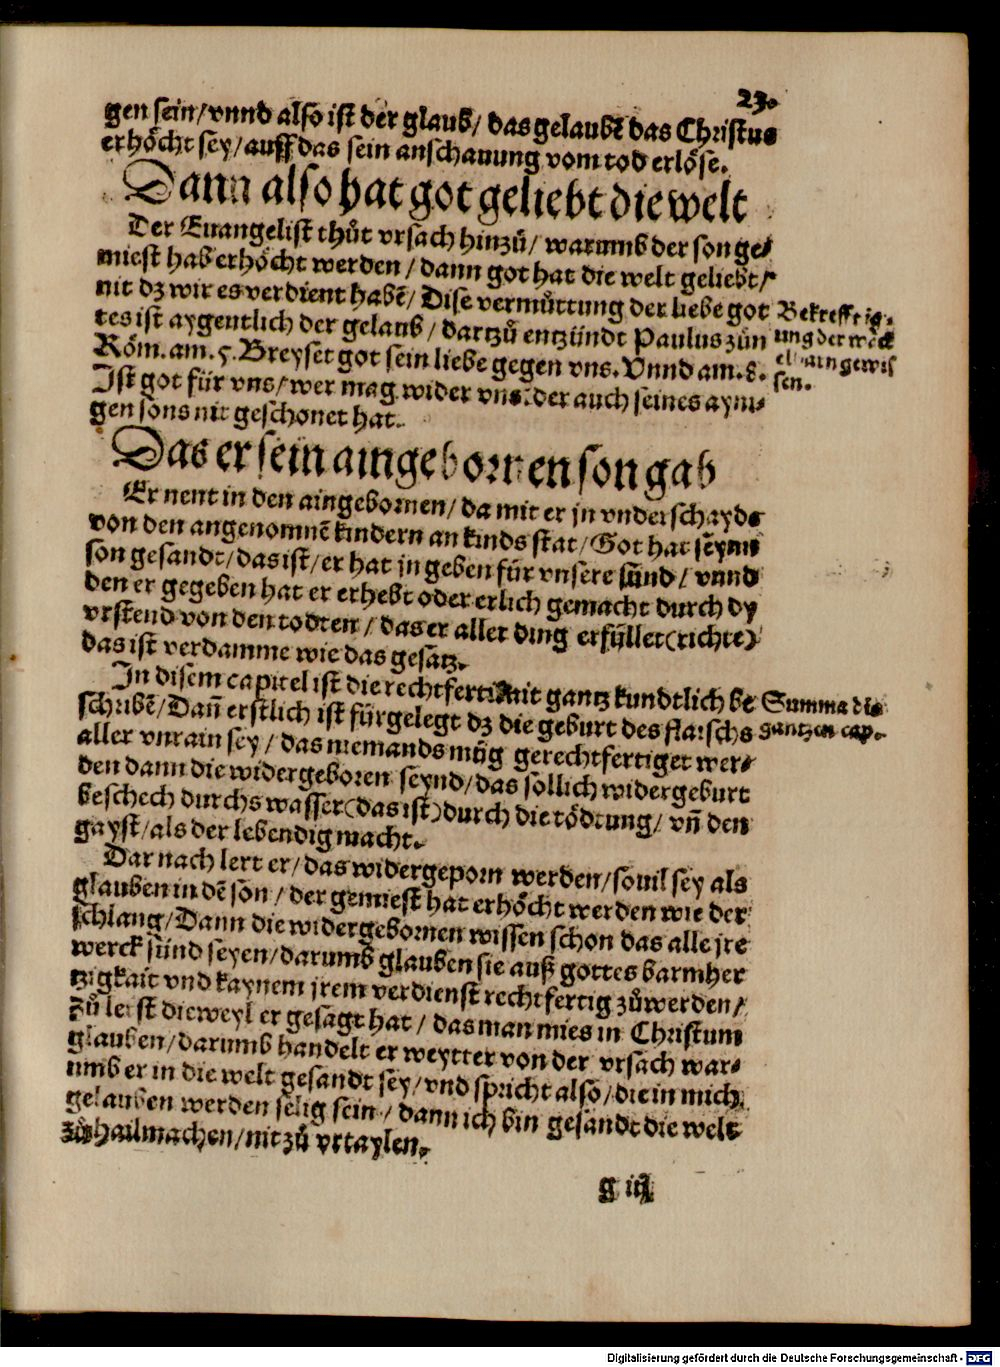 23.
gen sein/vnnd also ist der glaub/ das gelaubē das Christus
erhöcht sey/auff das sein anschauung vom tod erlöse.
Dann also hat got geliebt die welt
Der Euangelist thůt vrsach hinzů/ warumb der son ge⸗
miest hab erhöcht werden/dann got hat die welt geliebt/
nit dz wir es verdient habē/ Dise vermůttung der liebe got
tes ist aygentlich der gelaub/ dartzů entzündt Paulus zůn
Röm. am. 5. Breyset got sein liebe gegen vns. Vnnd am. 8.
Ist got für vns/wer mag wider vns. der auch seines ayni⸗
gen sons nit geschonet hat.
Bekrefftig⸗
ung der werck
gewis
sen.
Das er sein aingebornen son gab
Er nent in den aingebornen/ da mit er jn vnderschayde
von den angenomnē kindern an kinds stat/Got hat seynn
son gesandt/das ist/er hat jn geben für vnsere sünd/ vnnd
den er gegeben hat er erhebt oder erlich gemacht durch dy
vrstend von den todten/ das er aller ding erfüllet(richte)
das ist verdamme wie das gesatz.
In disem capitel ist die rechtfertikait gantz kundtlich be
schribē/Dañ erstlich ist fürgelegt dz die geburt des flaischs
aller vnrain sey/ das niemands müg gerechtfertiget wer⸗
den dann die widergeboren seynd/das sollich widergeburt
beschech durchs wasser(das ist)durch die tödtung/ vñ den
gayst/als der lebendig macht.
Summa dis
gantzen cap.
Dar nach lert er/das widergeporn werden/souil sey als
glauben in dē son/ der gemiest hat erhöcht werden wie der
schlang/Dann die widergebornen wissen schon das alle jre
werck sünd seyen/darumb glauben sie auß gottes barmher
tzigkait vnd kaynem jrem verdienst rechtfertig zůwerden/
Zů letst dieweyl er gesagt hat/ das man mies in Christum
glauben/darumb handelt er weytter von der vrsach war⸗
umb er in die welt gesandt sey/vnd spricht also/die in mich
gelauben werden selig sein/ dann ich bin gesandt die welt
zůhailmachen/nit zů vrtaylen.
g iij
Digitalisierung gefördert durch die Deutsche Forschungsgemeinschaft - DFG